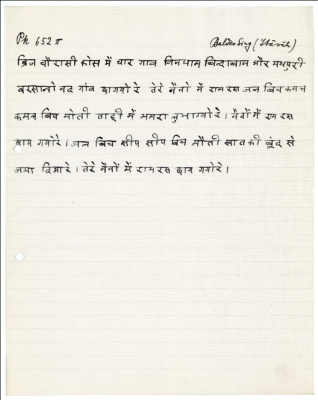 Ph 652 π
Baldeo Sing (Itāvāh)
ब्रिज चौरासी कोस में चार गाव निजधाम बिन्द्राबान और मथपुरी
बरसानो नद गांव छा गयो रे तेरे नैनो में राम रस जल बिच कमल
कमल बिच मोती ताही में भमरा लुभाग्यो रे । नैनों में राम रस
छाय गयोरे । जल बिच सीप सीप बिच मौती स्वात की बूंद से
जमा दिआ रे । तेरे नैनों में राम रस छाय गयोरे ।